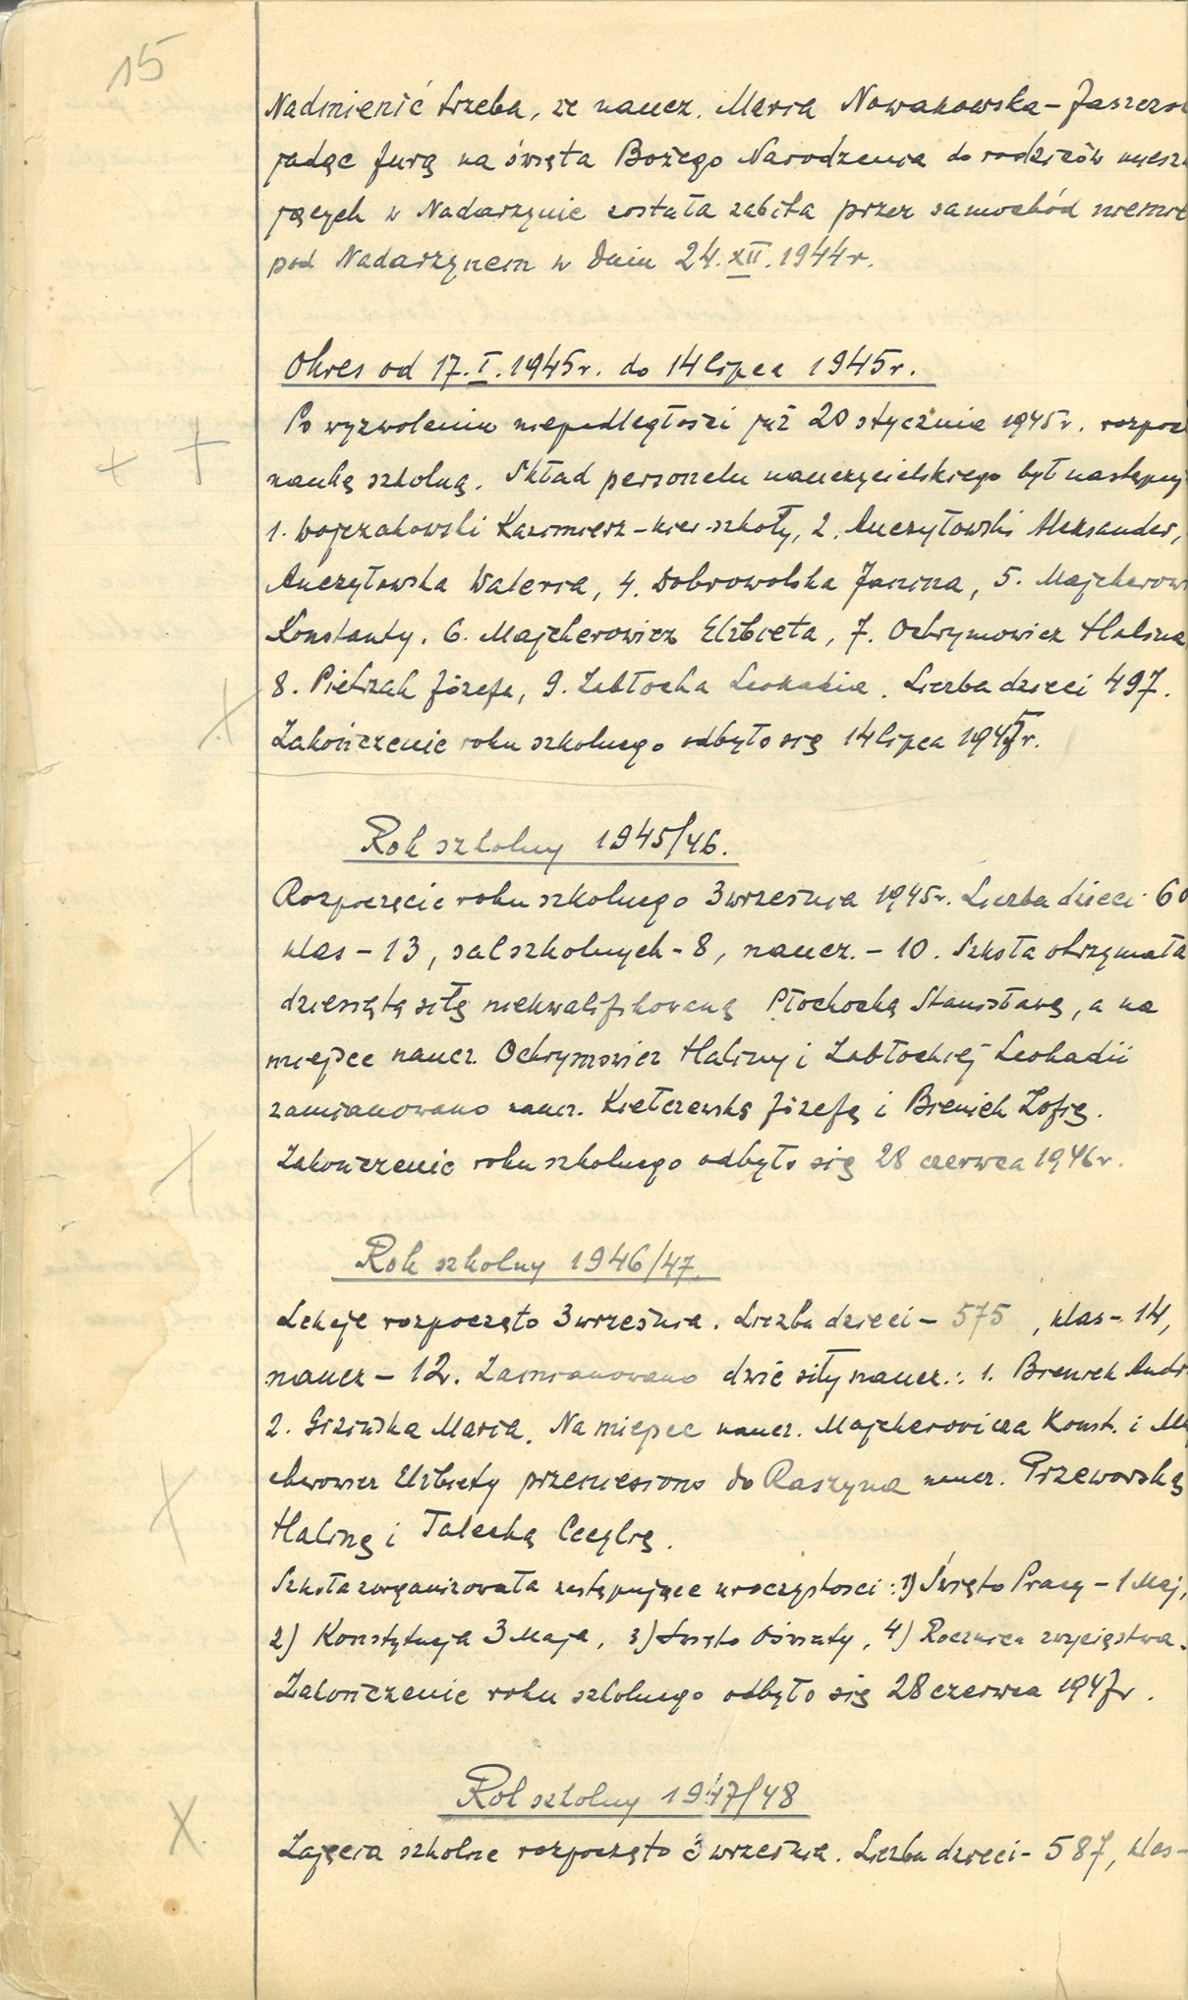 15
Nadmienić trzeba, że naucz. Maria Nowakowska – Jaszczoł
jadąc furą na święta Bożego Narodzenia do rodziców miesz
jących w Nadarzynie została zabita przez samochód niemie
pod Nadarzynem w dniu 24.XII.1944r.
Okres od 17.I.1945r. do 14 lipca 1945r.
Po wyzwoleniu niepodległości już 20 stycznia 1945r. rozpoc
naukę szkolną. Skład personelu nauczycielskiego był następuj
1. Wojczakowski Kazimierz – kier. szkoły, 2. Anczyłowski Aleksander,
Anczyłowska Waleria, 4. Dobrowolska Janina, 5. Majcherow
Konstanty. 6. Majcherowicz Elżbieta, 7. Ochrymowicz Halina
8. Pietrzak Józefa, 9. Zabłocka Leokadia. Liczba dzieci 497.
Zakończenie roku szkolnego odbyło się 14 lipca 1945r.
Rok szkolny 1945/46.
Rozpoczęcie roku szkolnego 3 września 1945r. Liczba dzieci - 60
klas – 13, sal szkolnych – 8, naucz. – 10. Szkoła otrzymała
dziesiątą siłę niekwalifikowaną Płochocką Stanisławę, a na
miejsce naucz. Ochrymowicz Haliny i Zabłockiej Leokadii
zamianowano naucz. Kiełczewską Józefę i Bieniek Zofię.
Zakończenie roku szkolnego odbyło się 28 czerwca 1946r.
Rok szkolny 1946/47.
Lekcje rozpoczęto 3 września. Liczba dzieci – 575, klas – 14,
naucz – 12. Zamianowano dwie siły naucz.: 1. Bieniek Andr
2. Gizińska Maria. Na miejsce naucz. Majcherowicza Konst. i Maj
cherowicz Elżbiety przeniesiono do Raszyna naucz. Przeworską
Halinę i Talecką Cecylię.
Szkoła zorganizowała następujące uroczystości: 1) Święto Pracy – 1 Maj,
2) Konstytucja 3 Maja, 3) Święto Oświaty, 4) Rocznica zwycięstwa.
Zakończenie roku szkolnego odbyło się 28 czerwca 1947r.
Rok szkolny 1947/48
Zajęcia szkolne rozpoczęto 3 września. Liczba dzieci – 587, klas –